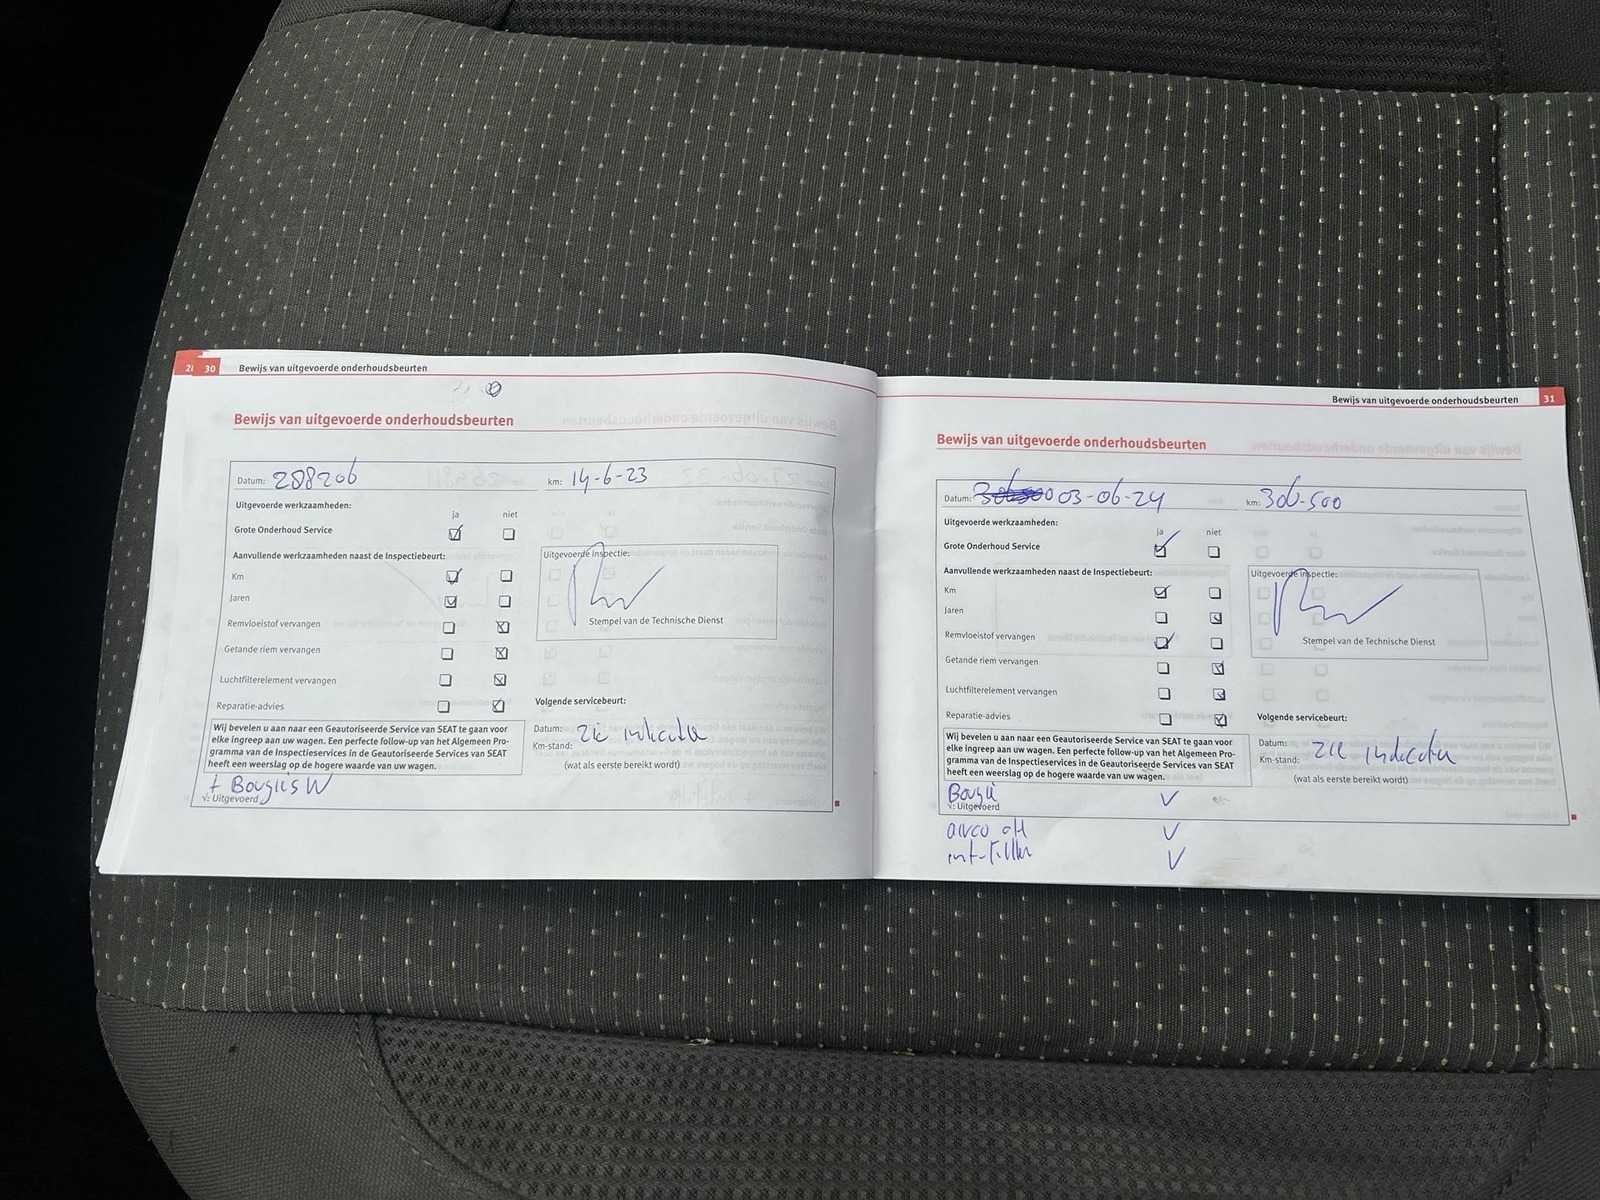 30 Bewijs van uitgevoerde onderhoudsbeurten
Bewijs van uitgevoerde onderhoudsbeurten
Datum: 288206 km: 14-6-23
Uitgevoerde werkzaamheden:
ja niet
Grote Onderhoud Service
Aanvullende werkzaamheden naast de Inspectiebeurt:
Uitgevoerde inspectie:
Km
Jaren
Remvloeistof vervangen
Stempel van de Technische Dienst
Getande riem vervangen
Luchtfilterelement vervangen
Reparatie-advies
Volgende servicebeurt:
Wij bevelen u aan naar een Geautoriseerde Service van SEAT te gaan voor
elke ingreep aan uw wagen. Een perfecte follow-up van het Algemeen Pro-
gramma van de Inspectieservices in de Geautoriseerde Services van SEAT
heeft een weerslag op de hogere waarde van uw wagen.
Datum: zie indicator
Km-stand:
(wat als eerste bereikt wordt)
+ Bougies W
√: Uitgevoerd
Bewijs van uitgevoerde onderhoudsbeurten 31
Bewijs van uitgevoerde onderhoudsbeurten
Datum: 03-06-24 km: 306-500
Uitgevoerde werkzaamheden:
ja niet
Grote Onderhoud Service
Aanvullende werkzaamheden naast de Inspectiebeurt:
Uitgevoerde inspectie:
Km
Jaren
Remvloeistof vervangen
Stempel van de Technische Dienst
Getande riem vervangen
Luchtfilterelement vervangen
Reparatie-advies
Volgende servicebeurt:
Wij bevelen u aan naar een Geautoriseerde Service van SEAT te gaan voor
elke ingreep aan uw wagen. Een perfecte follow-up van het Algemeen Pro-
gramma van de Inspectieservices in de Geautoriseerde Services van SEAT
heeft een weerslag op de hogere waarde van uw wagen.
Datum:
Km-stand: zie indicator
(wat als eerste bereikt wordt)
Bougie √
√: Uitgevoerd
airco √
int-filter √